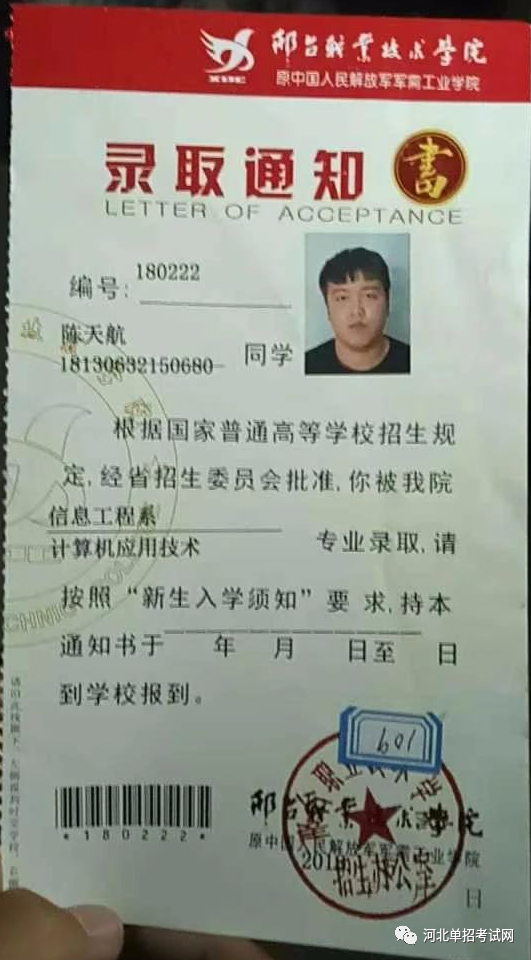 邢台职业技术学院
原中国人民解放军军需工业学院
录取通知书
LETTER OF ACCEPTANCE
编号: 180222
陈天航
18130632150680 同学
根据国家普通高等学校招生规
定,经省招生委员会批准,你被我院
信息工程系
计算机应用技术 专业录取,请
按照“新生入学须知”要求,持本
通知书于 年 月 日至 日
到学校报到。
601
*180222*
邢台职业技术学院
原中国人民解放军军需工业学院
招生办公室
日
河北单招考试网